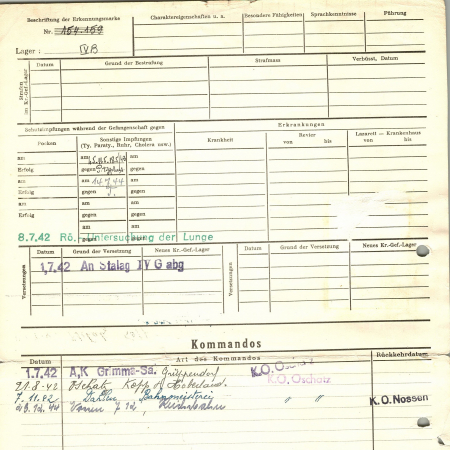 Beschriftung der Erkennungsmarke
Nr. 154.159
Lager: IV B
Charaktereigenschaften u. a.
Besondere Fähigkeiten
Sprachkenntnisse
Führung
Strafen im Kr.-Gef.-Lager
Datum
Grund der Bestrafung
Strafmass
Verbüsst, Datum
Schutzimpfungen während der Gefangenschaft gegen
Erkrankungen
Pocken
Sonstige Impfungen
(Ty. Paraty., Ruhr, Cholera usw.)
Krankheit
Revier
von bis
Lazarett - Krankenhaus
von bis
am am am
Erfolg gegen gegen
am am 14.7.44 am
Erfolg gegen gegen
am am am
Erfolg gegen gegen
am am
gegen gegen
8.7.42 Rö. Untersuchung der Lunge
Versetzungen
Datum
Grund der Versetzung
Neues Kr.-Gef.-Lager
Versetzungen
Datum
Grund der Versetzung
Neues Kr.-Gef.-Lager
1.7.42 An Stalag IV G abg
Kommandos
Datum
Art des Kommandos
Rückkehrdatum
1.7.42 A,K Grimma-Sa. K.O. Oschatz
21.8.42 K.O. Oschatz
7.11.42 Dahlen Bahnmeisterei " "
K.O. Nossen